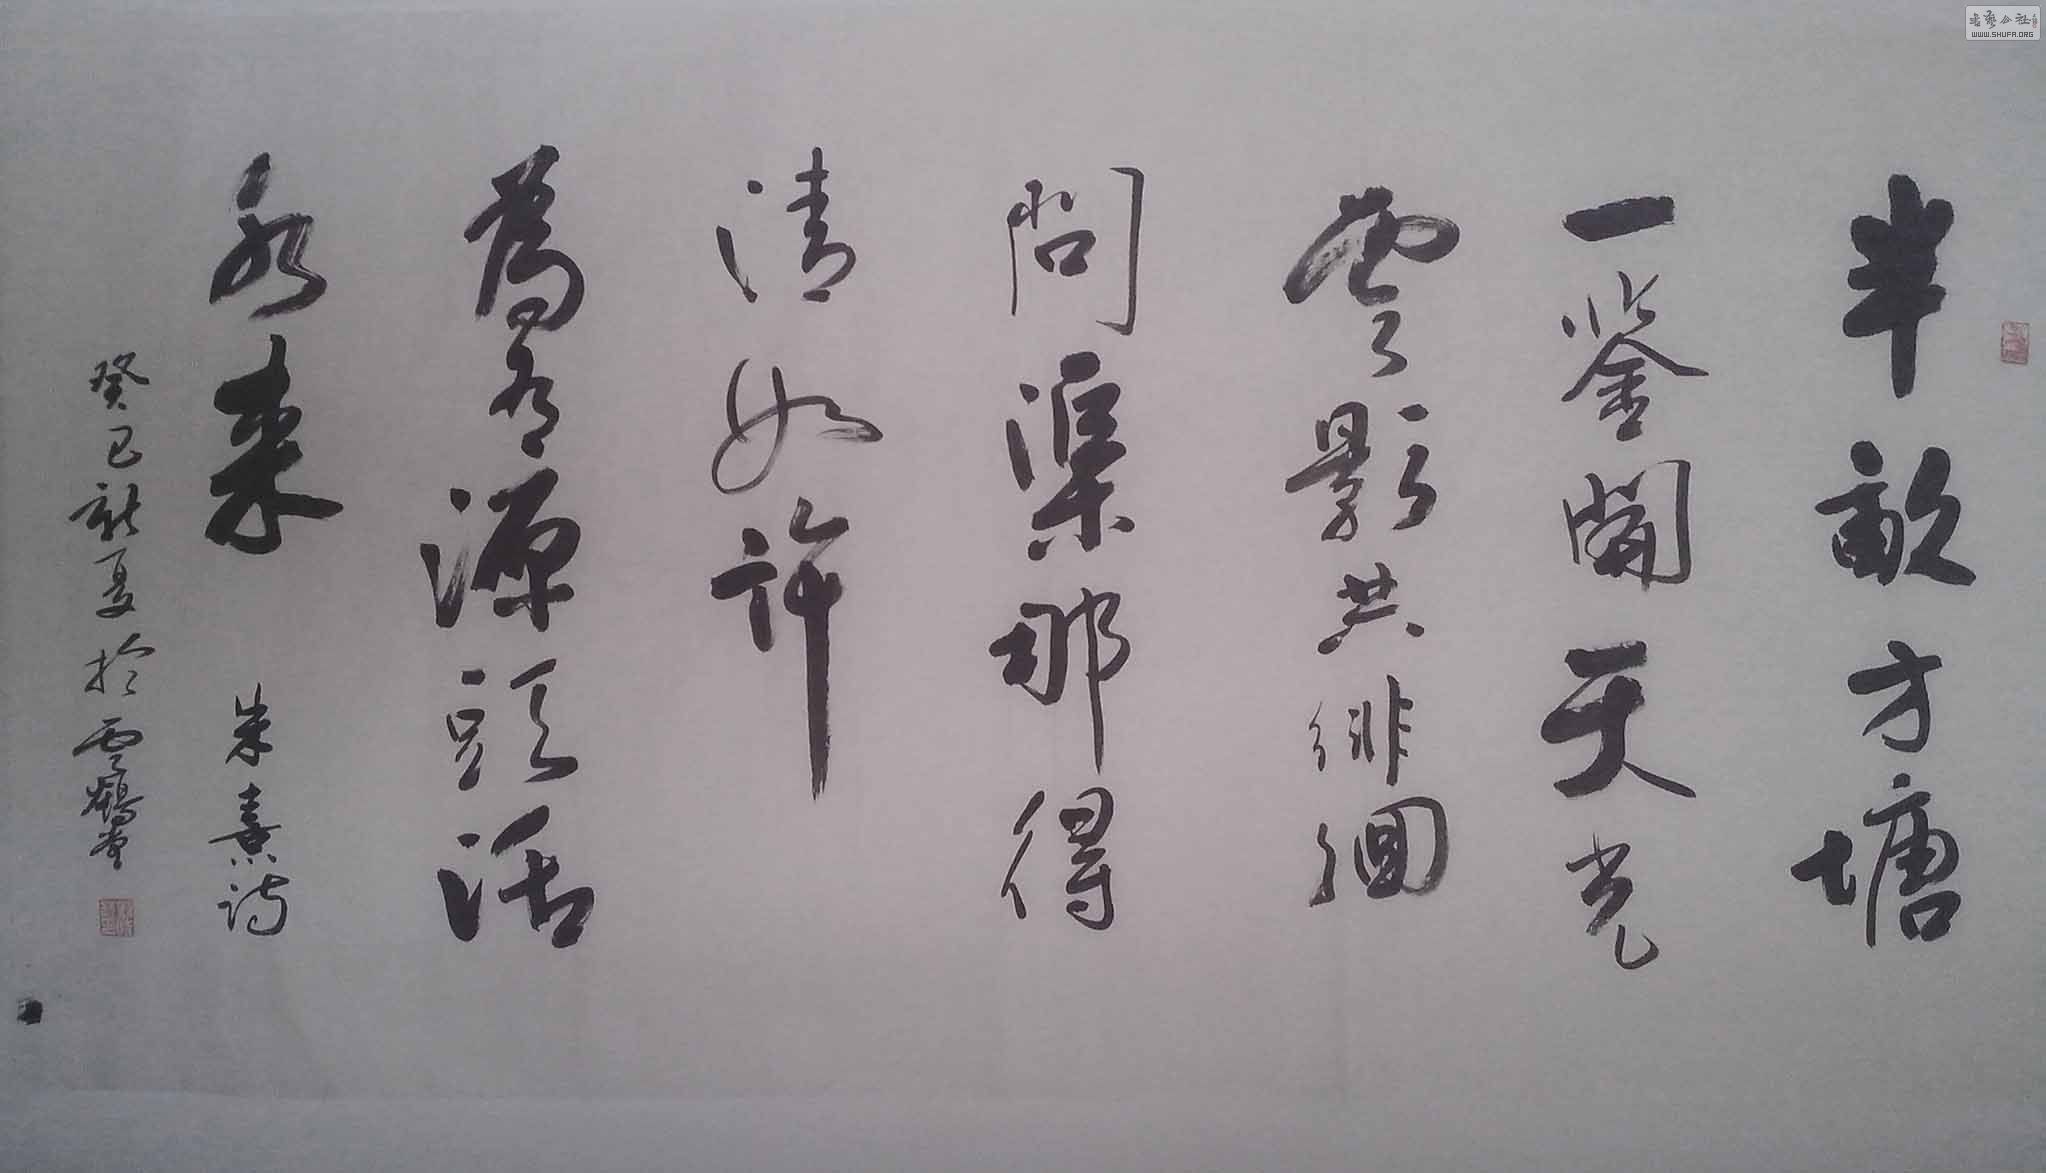 半畝方塘
一鑒開天光
雲影共徘徊
問渠那得
清如許
為有源頭活
水來
朱熹詩
癸巳新夏於雲鶴堂
WWW.SHUFA.ORG